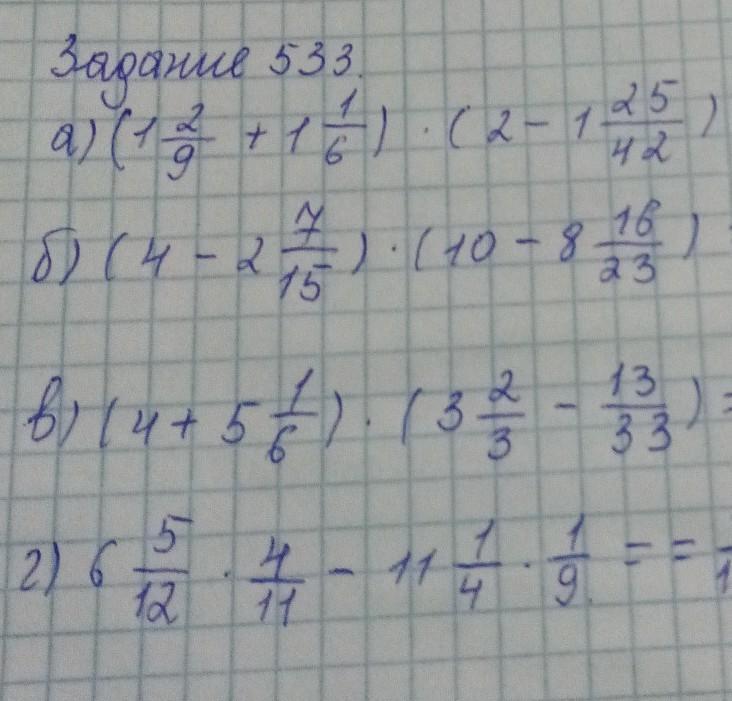 Задание 533.
а) (1 2/9 + 1 1/6) · (2 - 1 25/42)
б) (4 - 2 7/15) · (10 - 8 16/23)
в) (4 + 5 1/6) · (3 2/3 - 13/33) =
г) 6 5/12 · 4/11 - 11 1/4 · 1/9 = =